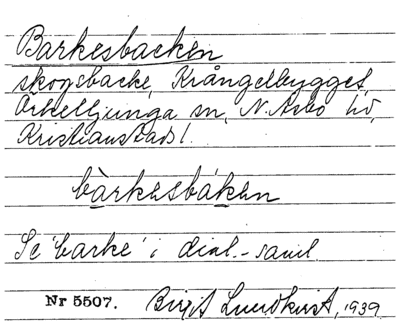 Barkesbacken
skogsbacke, Krångelbygget,
Örkelljunga sn, N. Åsbo hd,
Kristianstads l.
bàrkesbáken
Se 'barke' i dial.-saml
Nr 5507. Birgit Lundkvist, 1939